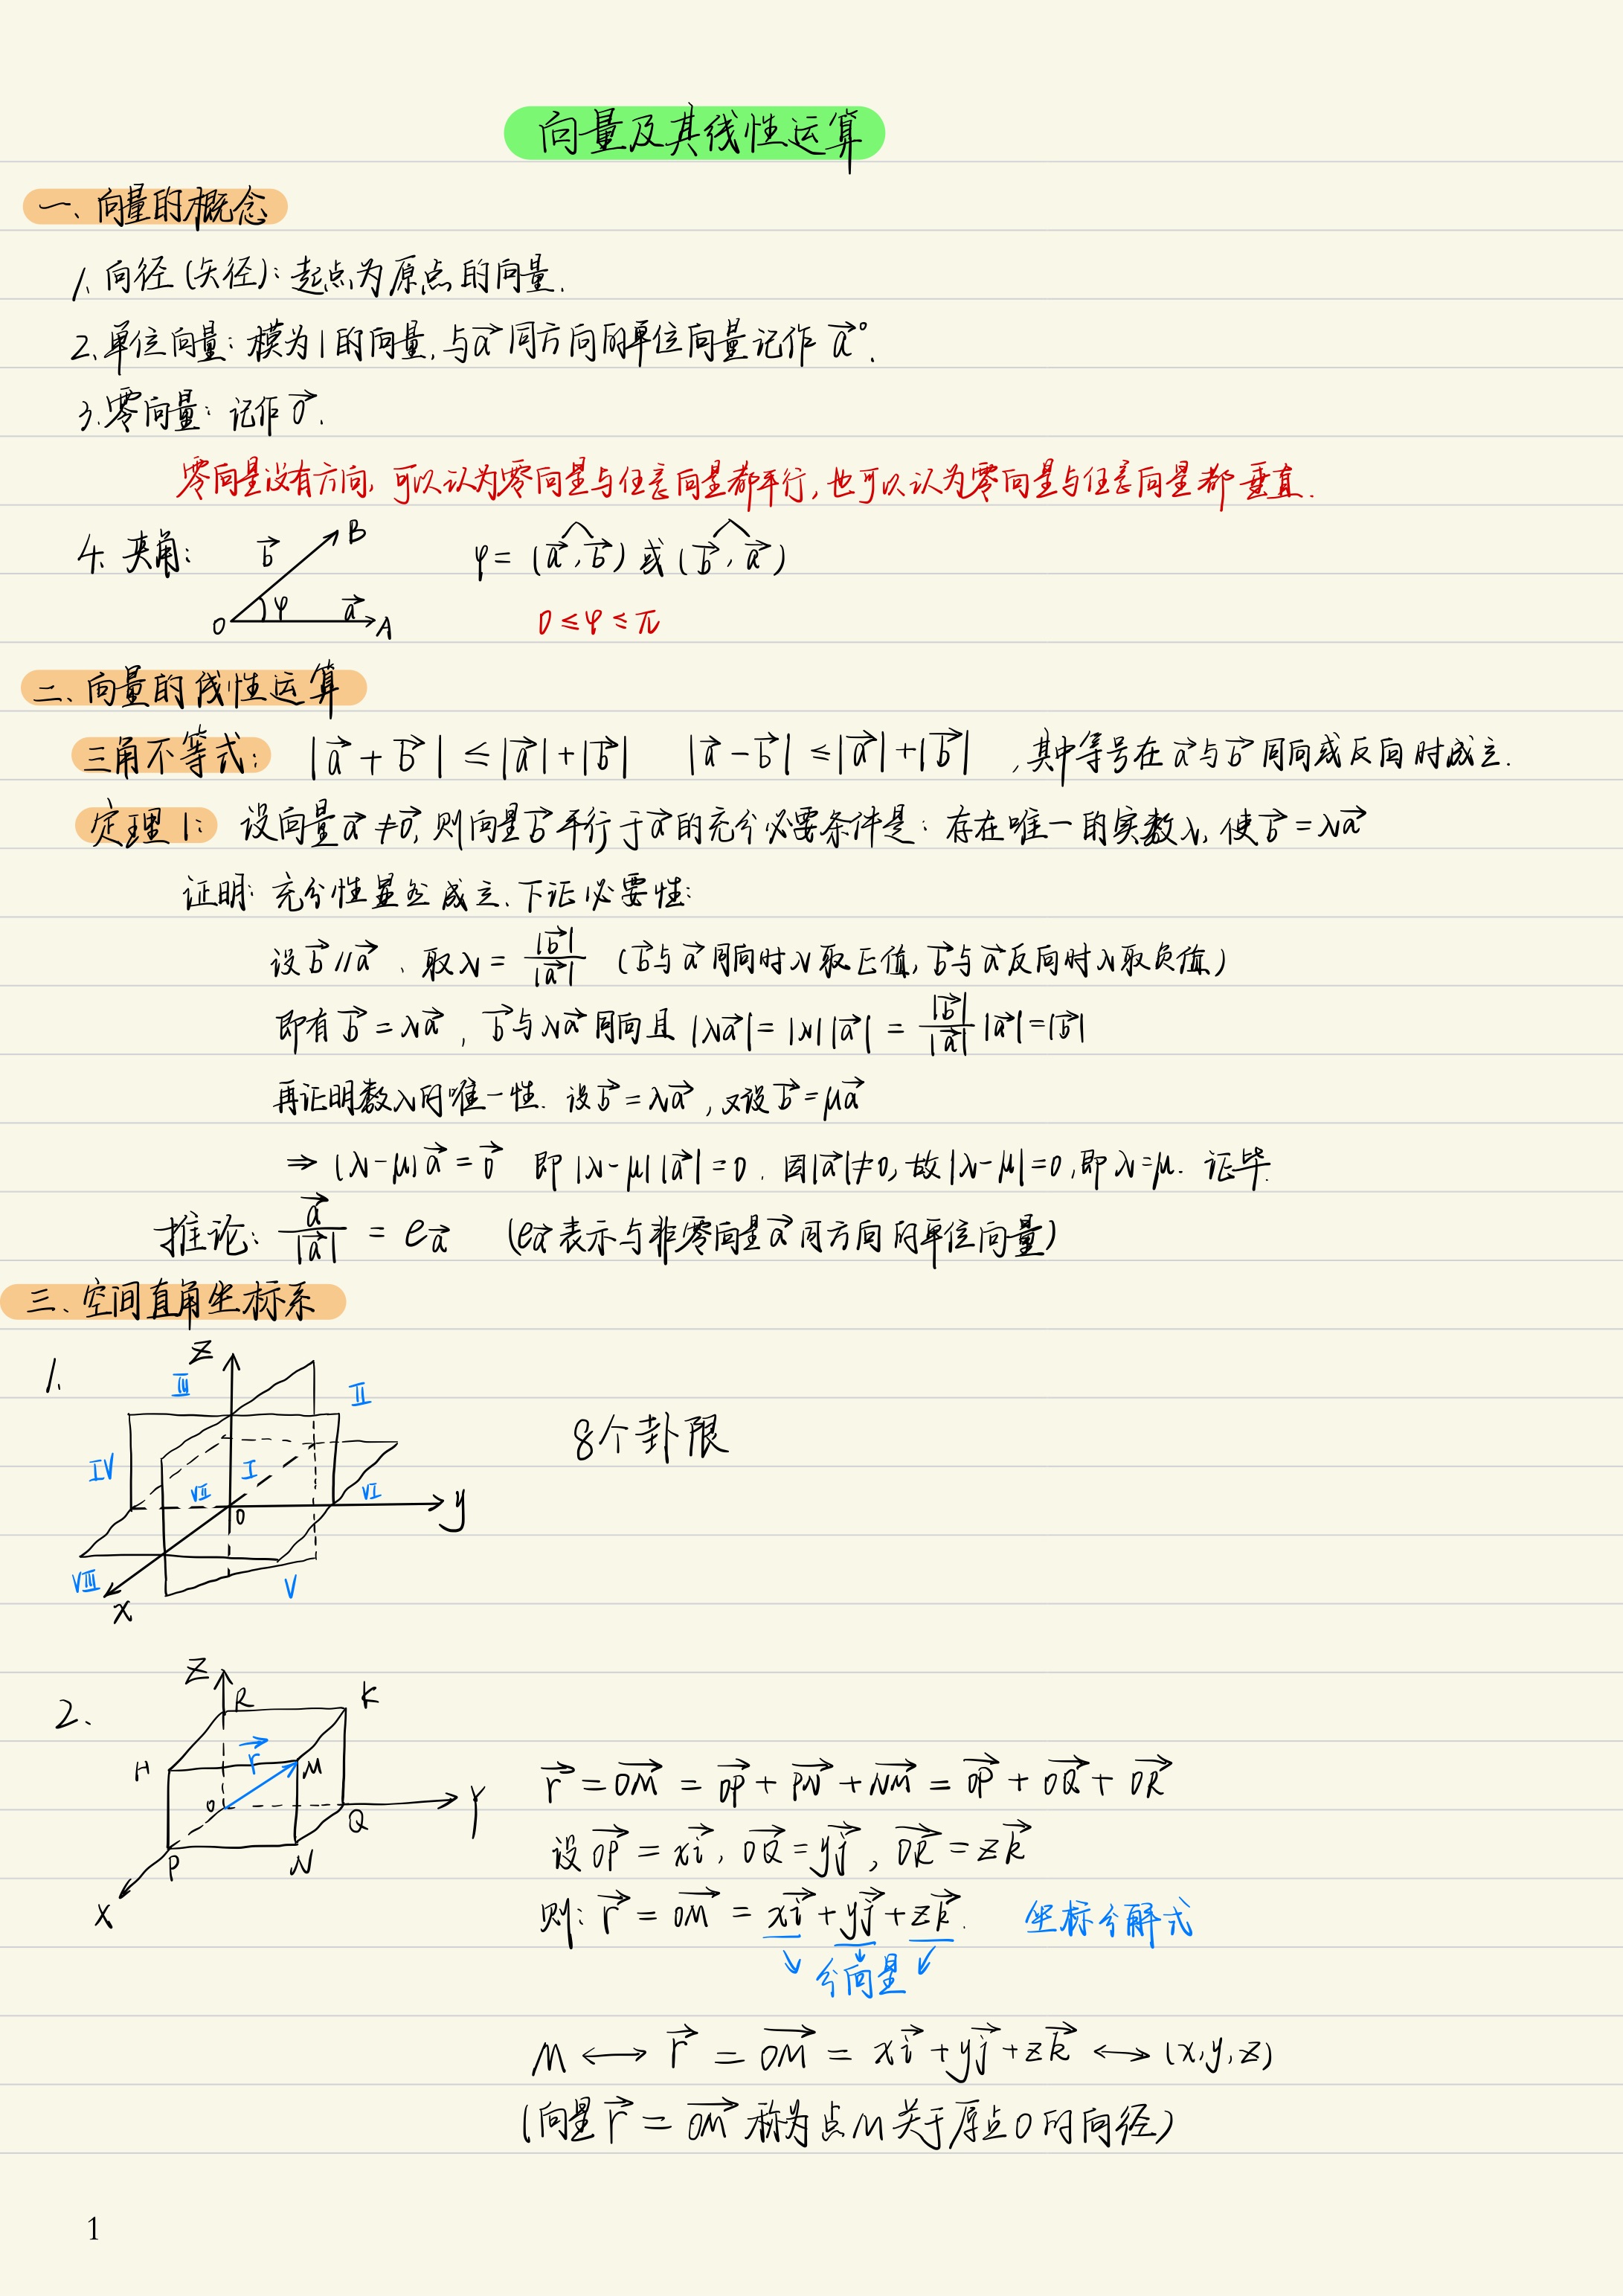 向量及其线性运算
一、向量的概念
1. 向径 (矢径): 起点为原点的向量.
2. 单位向量: 模为1的向量, 与 $\vec{a}$ 同方向的单位向量记作 $\vec{a}^{\circ}$.
3. 零向量: 记作 $\vec{0}$.
零向量没有方向, 可以认为零向量与任意向量都平行, 也可以认为零向量与任意向量都垂直.
4. 夹角: $\vec{b}$ B φ $\vec{a}$ O A φ = ($\widehat{\vec{a}, \vec{b}}$) 或 ($\widehat{\vec{b}, \vec{a}}$)
0 ≤ φ ≤ π
二、向量的线性运算
三角不等式: $|\vec{a}+\vec{b}| ≤ |\vec{a}|+|\vec{b}|$ $|\vec{a}-\vec{b}| ≤ |\vec{a}|+|\vec{b}|$ , 其中等号在 $\vec{a}$ 与 $\vec{b}$ 同向或反向时成立.
定理1: 设向量 $\vec{a} ≠ \vec{0}$, 则向量 $\vec{b}$ 平行于 $\vec{a}$ 的充分必要条件是: 存在唯一的实数λ, 使 $\vec{b} = λ\vec{a}$
证明: 充分性显然成立. 下证必要性:
设 $\vec{b} // \vec{a}$ 、取 $λ = \frac{|\vec{b}|}{|\vec{a}|}$ ($\vec{b}$ 与 $\vec{a}$ 同向时λ取正值, $\vec{b}$ 与 $\vec{a}$ 反向时λ取负值)
即有 $\vec{b} = λ\vec{a}$ , $\vec{b}$ 与 $λ\vec{a}$ 同向且 $|λ\vec{a}| = |λ||\vec{a}| = \frac{|\vec{b}|}{|\vec{a}|}|\vec{a}| = |\vec{b}|$
再证明数λ的唯一性. 设 $\vec{b} = λ\vec{a}$ , 又设 $\vec{b} = μ\vec{a}$
⇒ $(λ-μ)\vec{a} = \vec{0}$ 即 $|λ-μ||\vec{a}| = 0$ . 因 $|\vec{a}| ≠ 0$, 故 $|λ-μ| = 0$, 即 λ=μ. 证毕.
推论: $\frac{\vec{a}}{|\vec{a}|} = e_{\vec{a}}$ ($e_{\vec{a}}$ 表示与非零向量 $\vec{a}$ 同方向的单位向量)
三、空间直角坐标系
1. z Ⅲ Ⅱ
8个卦限
Ⅳ Ⅶ Ⅰ Ⅵ
O y
Ⅷ Ⅴ
x
2. z R K
H $\vec{r}$ M
O Q y
P N
x
$\vec{r} = \overrightarrow{OM} = \overrightarrow{OP} + \overrightarrow{PN} + \overrightarrow{NM} = \overrightarrow{OP} + \overrightarrow{OQ} + \overrightarrow{OR}$
设 $\overrightarrow{OP} = x\vec{i}$, $\overrightarrow{OQ} = y\vec{j}$, $\overrightarrow{OR} = z\vec{k}$
则: $\vec{r} = \overrightarrow{OM} = x\vec{i} + y\vec{j} + z\vec{k}$. 坐标分解式
↘ ↓ ↙
分向量
M ⟷ $\vec{r} = \overrightarrow{OM} = x\vec{i} + y\vec{j} + z\vec{k}$ ⟷ (x,y,z)
(向量 $\vec{r} = \overrightarrow{OM}$ 称为点M关于原点O的向径)
1